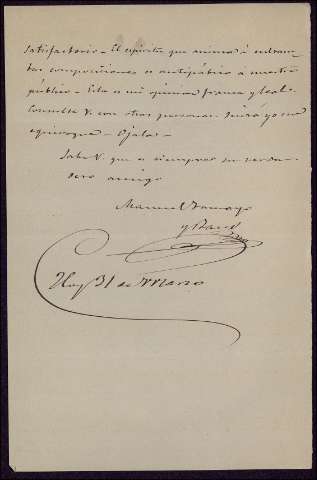 satisfactorio - El espíritu que anima á entram-
bas composiciones es antipático a nuestro
público - Esta es mi opinion franca y leal.
Consulte V. con otras personas. Quizá yo me
equivoque - Ojala -
Sabe V. que es siempre su verda-
dero amigo
Manuel Tamayo
y Baus
Hoy 31 de Marzo